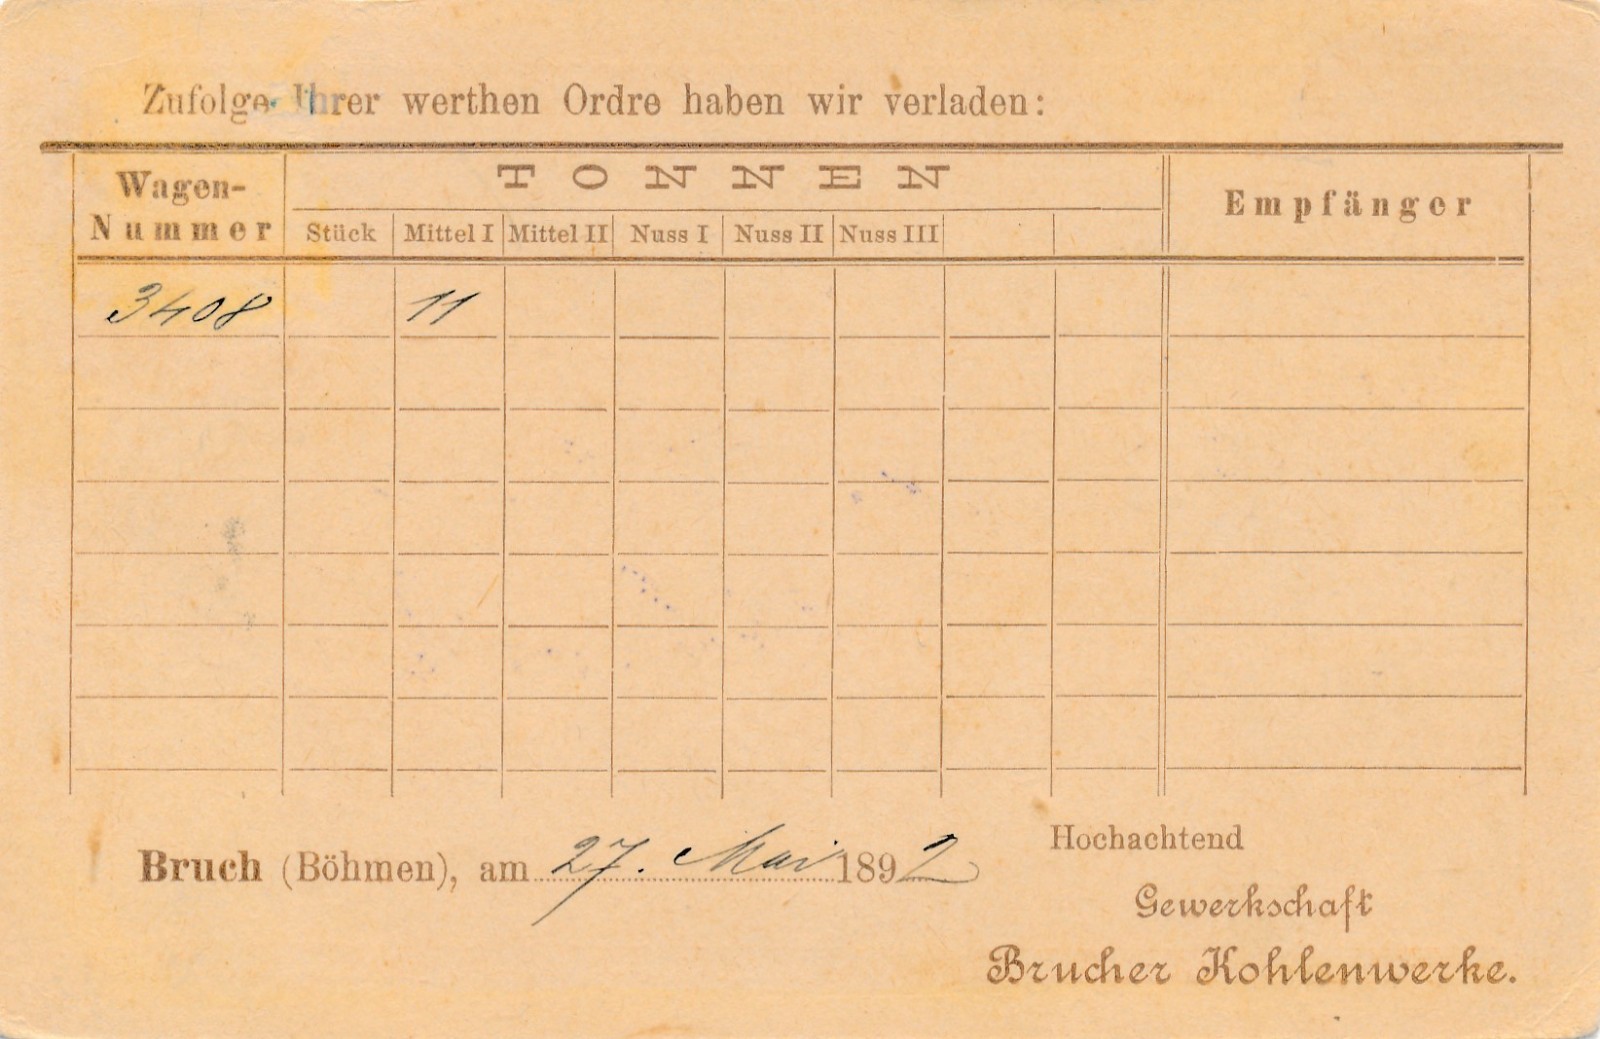 Zufolge Ihrer werthen Ordre haben wir verladen:
Wagen-
Nummer
TONNEN
Empfänger
Stück Mittel I Mittel II Nuss I Nuss II Nuss III
3408 11
Bruch (Böhmen), am 27. Mai 1892
Hochachtend
Gewerkschaft
Brucher Kohlenwerke.